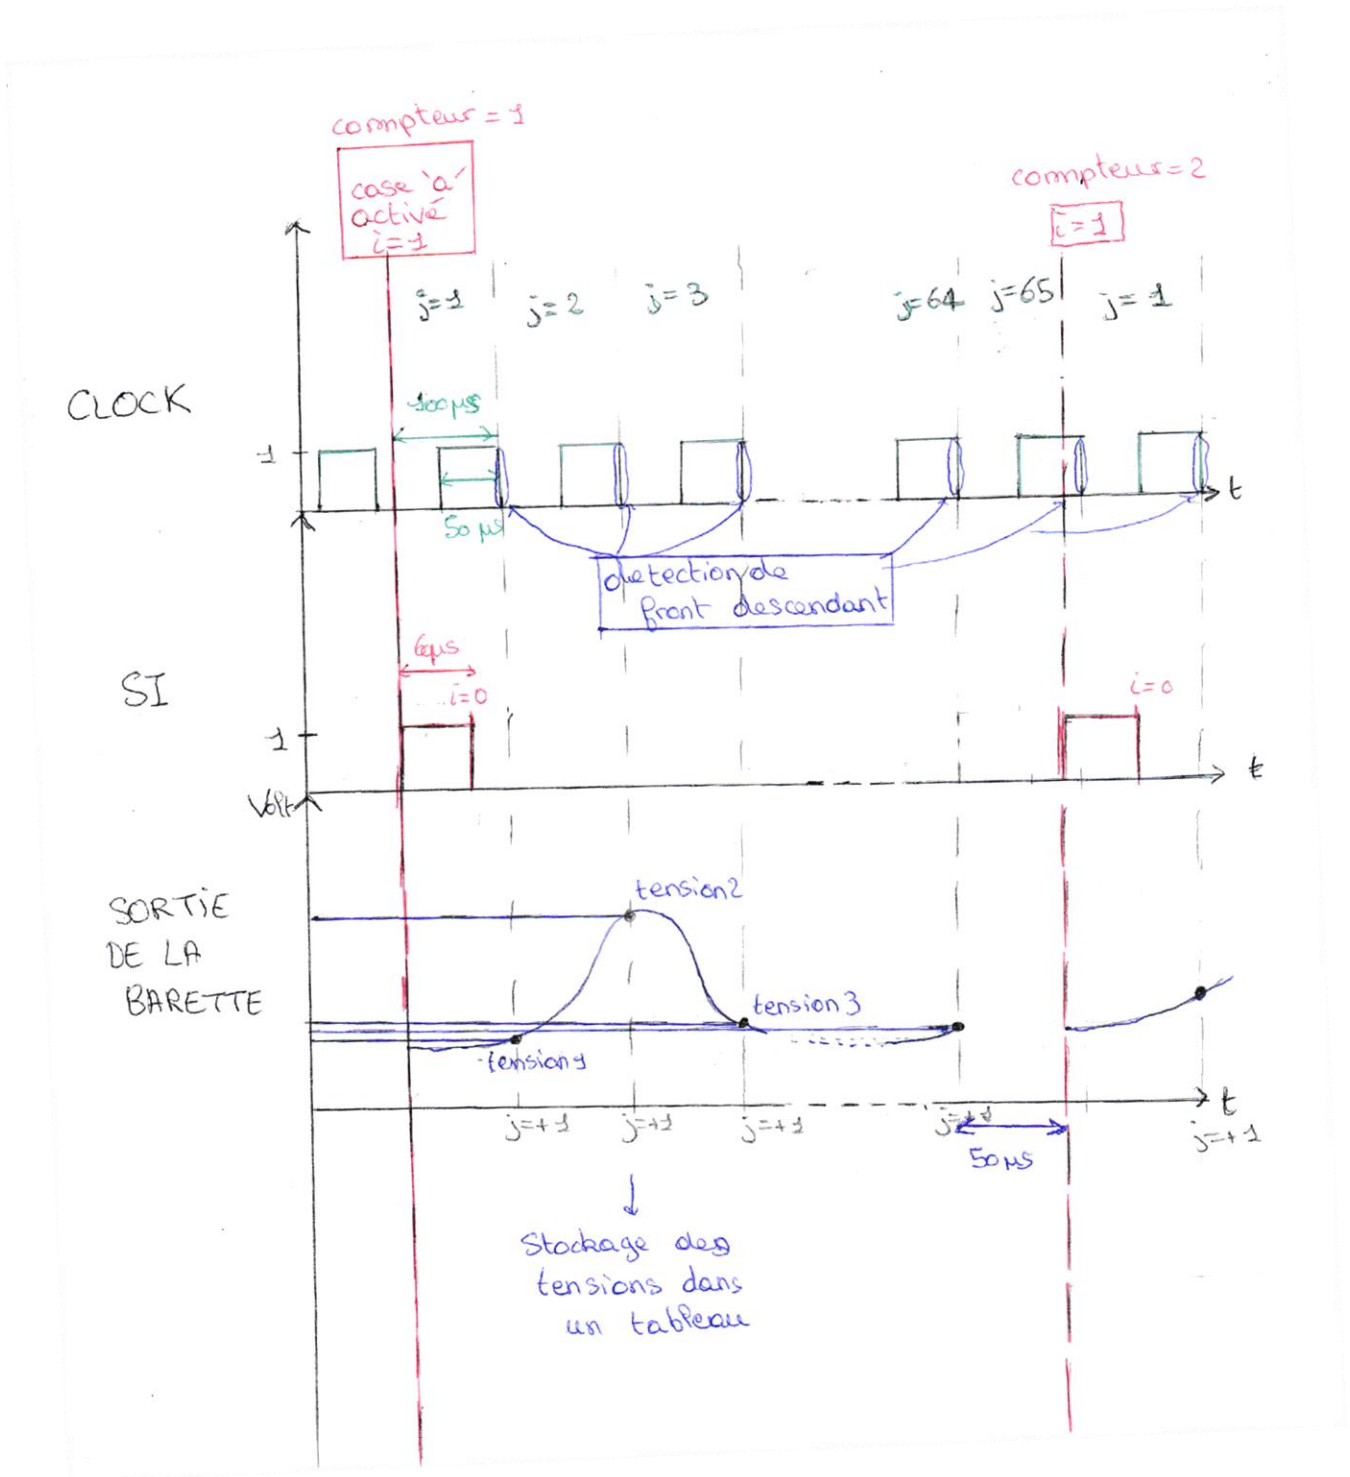 compteur = 1
case 'a'
activé
i=1
compteur=2
i=1
j=1
j=2
j=3
j=64
j=65
j=1
CLOCK
100µs
1
t
50µs
detection de
front descendant
6µs
SI
i=0
i=0
1
t
Volt
tension2
SORTIE
DE LA
BARETTE
tension3
tension1
t
j=+1
j=+1
j=+1
j=+1
j=+1
50µs
↓
Stockage des
tensions dans
un tableau